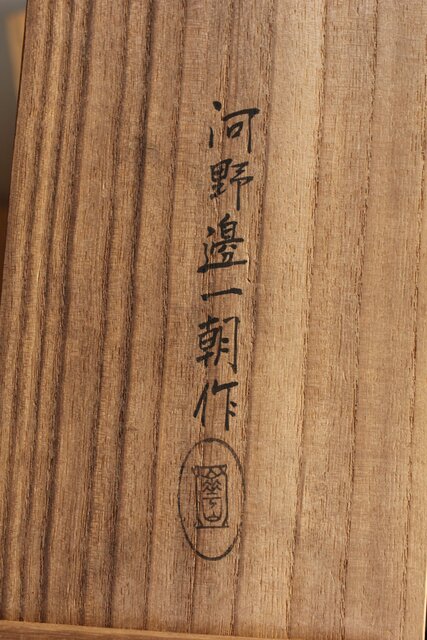 河野邊一朝作